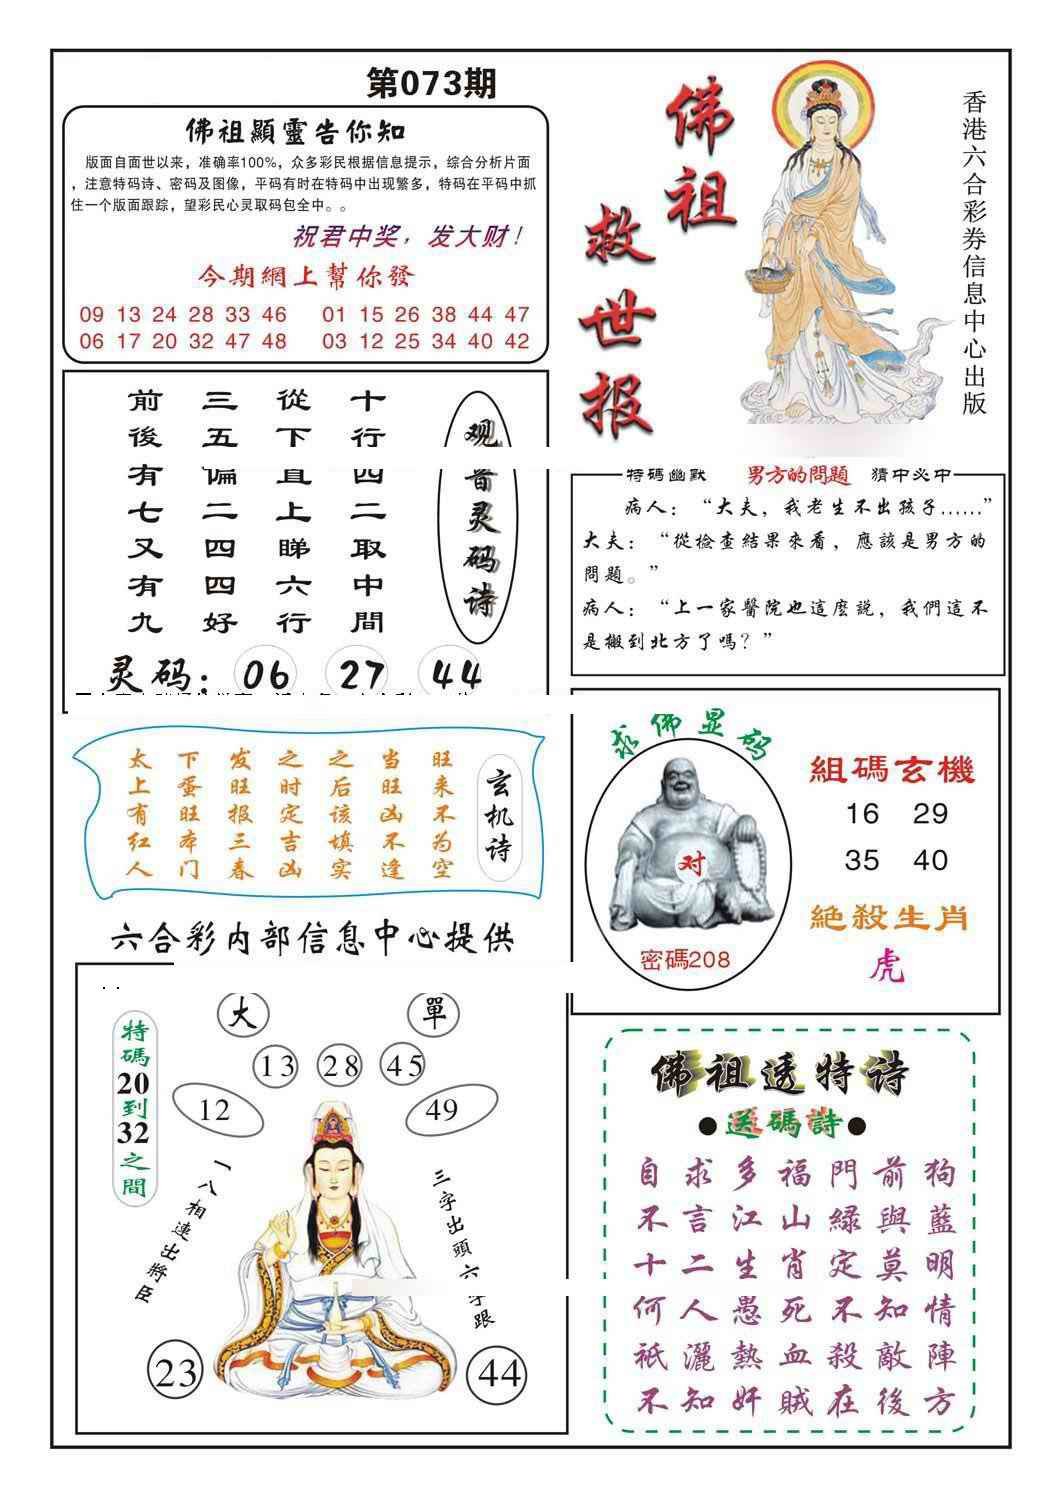 第073期
佛祖顯靈告你知
版面自面世以来，准确率100%，众多彩民根据信息提示，综合分析片面
，注意特码诗、密码及图像，平码有时在特码中出现繁多，特码在平码中抓
住一个版面跟踪，望彩民心灵取码包全中。。
祝君中奖，发大财！
今期網上幫你發
09 13 24 28 33 46 01 15 26 38 44 47
06 17 20 32 47 48 03 12 25 34 40 42
佛祖
救世报
香港六合彩券信息中心出版
前後有七又有九
三五偏二四四好
從下直上睇六行
十行四二取中間
观音灵码诗
灵码：06 27 44
特碼幽默 男方的問題 猜中必中
病人：“大夫，我老生不出孩子……”
大夫：“從檢查結果來看，應該是男方的
問題。”
病人：“上一家醫院也這麼説，我們這不
是搬到北方了嗎？”
太上有红人
下蛋旺本门
发旺报三春
之时定吉凶
之后该填实
当旺凶不逢
旺来不为空
玄机诗
求佛显码
对
密碼208
組碼玄機
16 29
35 40
絕殺生肖
虎
六合彩内部信息中心提供
特碼20到32之間
大 單
13 28 45
12 49
一八相連出將臣
三字出頭六字跟
23 44
佛祖透特诗
●送碼詩●
自求多福門前狗
不言江山緑與藍
十二生肖定莫明
何人愚死不知情
祇灑熱血殺敵陣
不知奸賊在後方